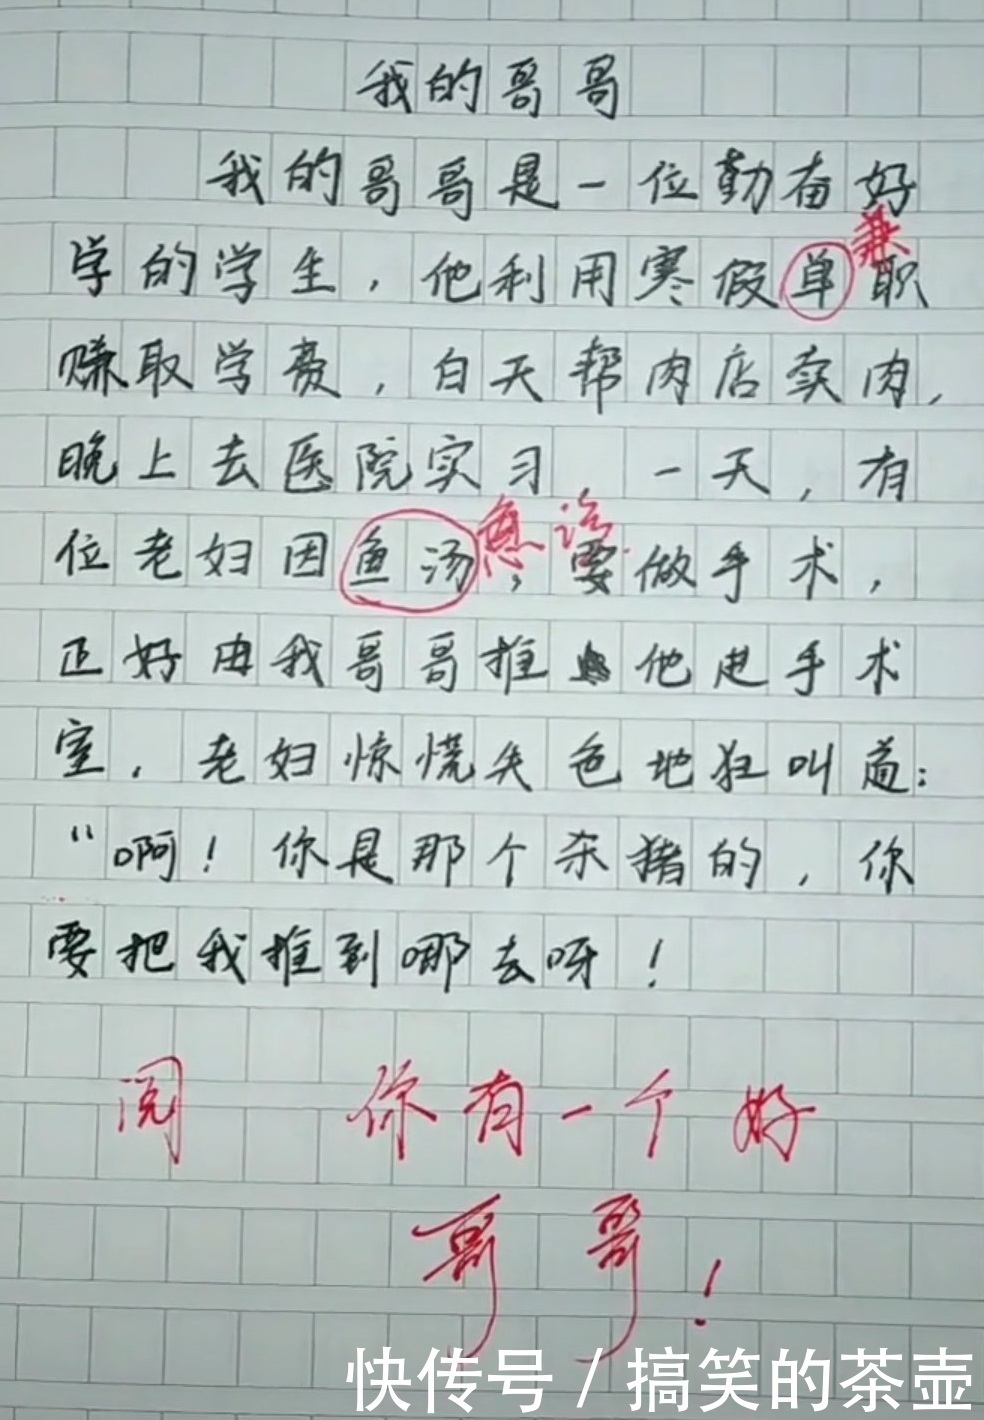 我的哥哥
我的哥哥是一位勤奋好
兼
学的学生，他利用寒假单职
赚取学费，白天帮肉店卖肉，
晚上去医院实习 一天，有
急诊
位老妇因鱼汤，要做手术，
正好由我哥哥推他进手术
室，老妇惊慌失色地狂叫道：
“啊！你是那个杀猪的，你
要把我推到哪去呀！
阅 你有一个好
哥哥！
快传号 / 搞笑的茶壶